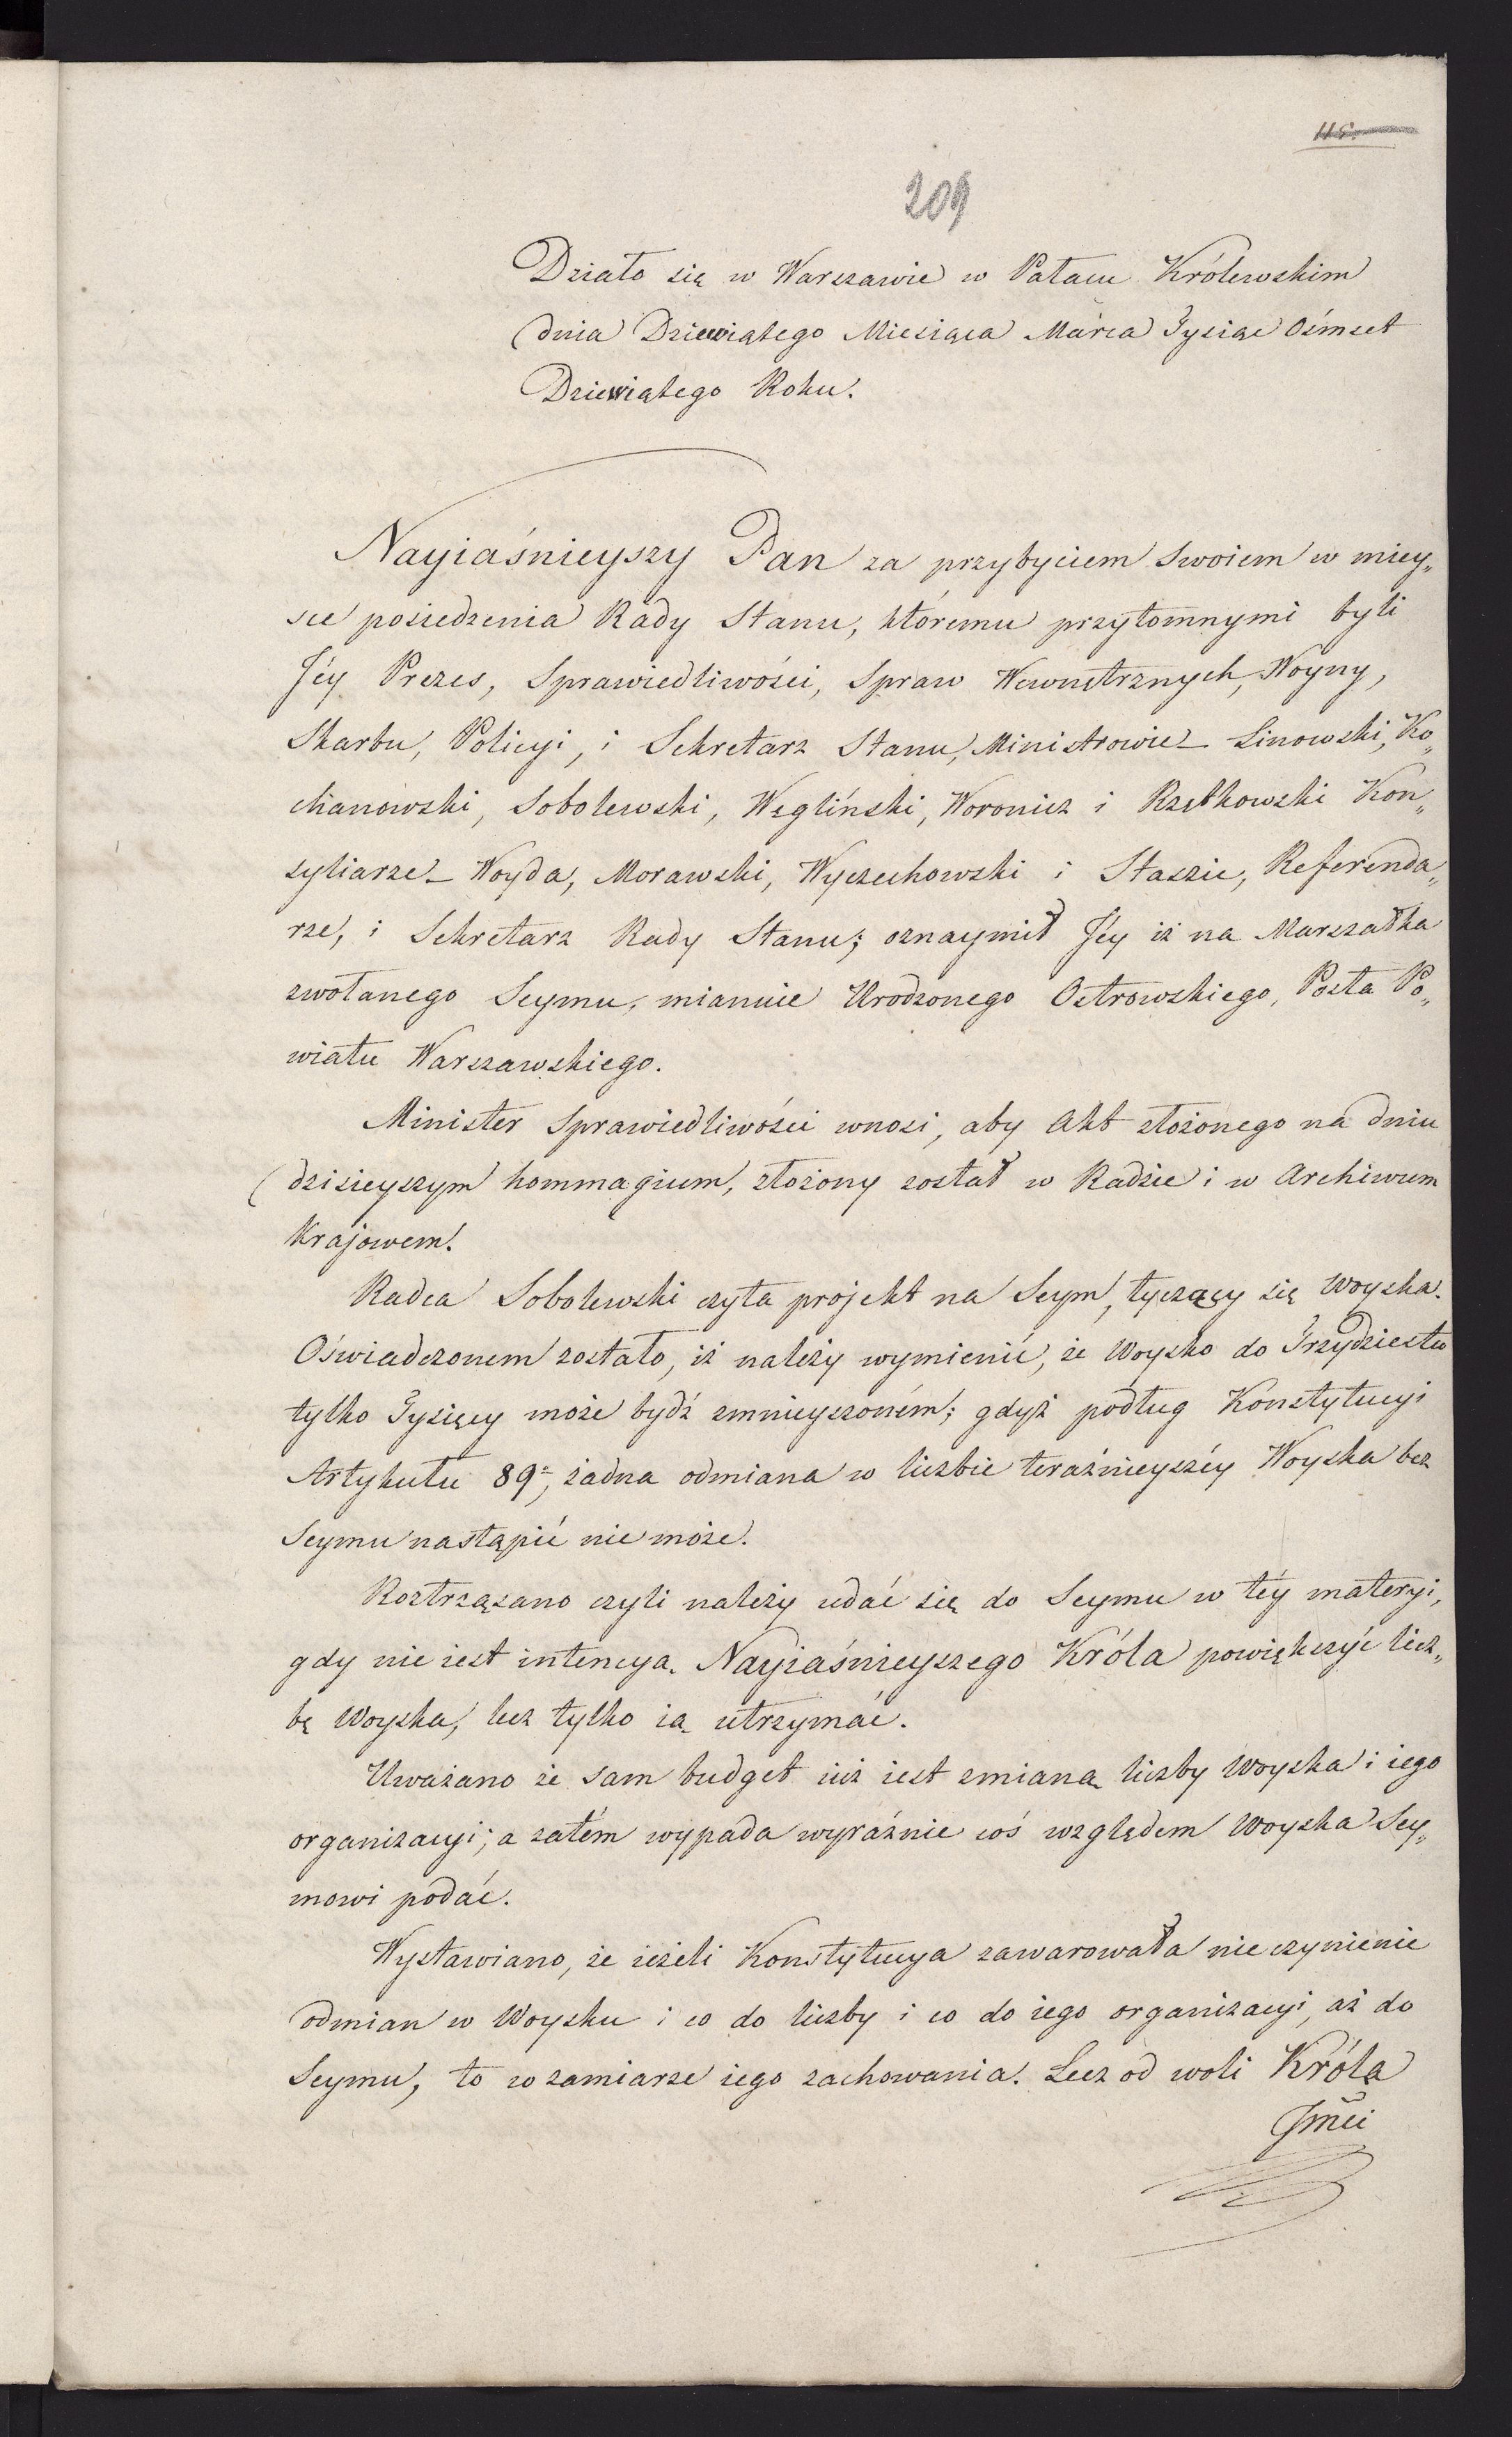 115.
209
Działo się w Warszawie w Pałacu Królewskim
dnia Dziewiątego Miesiąca Marca Tysiąc Ośmset
Dziewiątego Roku.
Nayiaśnieyszy Pan za przybyciem swoiem w miey„
sce posiedzenia Rady Stanu, któremu przytomnymi byli
Jéy Prezes, Sprawiedliwości, Spraw Wewnętrznych, Woyny,
Skarbu, Policyi, i Sekretarz Stanu, Ministrowie_ Linowski, Ko„
chanowski, Sobolewski, Węgliński, Woronicz i Rzętkowski Kon„
syliarze_ Woyda, Morawski, Wyczechowski i Staszic, Referenda„
rze, i Sekretarz Rady Stanu; oznaymił Jéy iż na Marszałka
zwołanego Seymu, mianuie Urodzonego Ostrowskiego, Posła Po„
wiatu Warszawskiego.
Minister Sprawiedliwości wnosi, aby Akt złożonego na dniu
dzisieyszym hommagium, złożony został w Radzie i w Archiwum
Krajowem.
Radca Sobolewski czyta projekt na Seym, tyczący się Woyska.
Oświadczonem zostało, iż należy wymienić, że Woysko do Trzydziestu
tylko Tysięcy może bydź zmnieyszoném; gdyż podług Konstytucyi
Artykułu 89º, żadna odmiana w liczbie teraźnieyszéy Woyska bez
Seymu nastąpić nie może.
Roztrząsano czyli należy udać się do Seymu w téy materyi,
gdy nie iest intencyą Nayiaśnieyszego Króla powiększyć licz„
bę Woyska, lecz tylko ią utrzymać.
Uważano że sam budget iuż iest zmianą liczby Woyska i iego
organizacyi; a zatém wypada wyraźnie coś względem Woyska Sey„
mowi podać.
Wystawiano, że ieżeli Konstytucya zawarowała nie czynienie
odmian w Woysku i co do liczby i co do iego organizacyi, aż do
Seymu, to w zamiarze iego zachowania. Lecz od woli Króla
Jmci